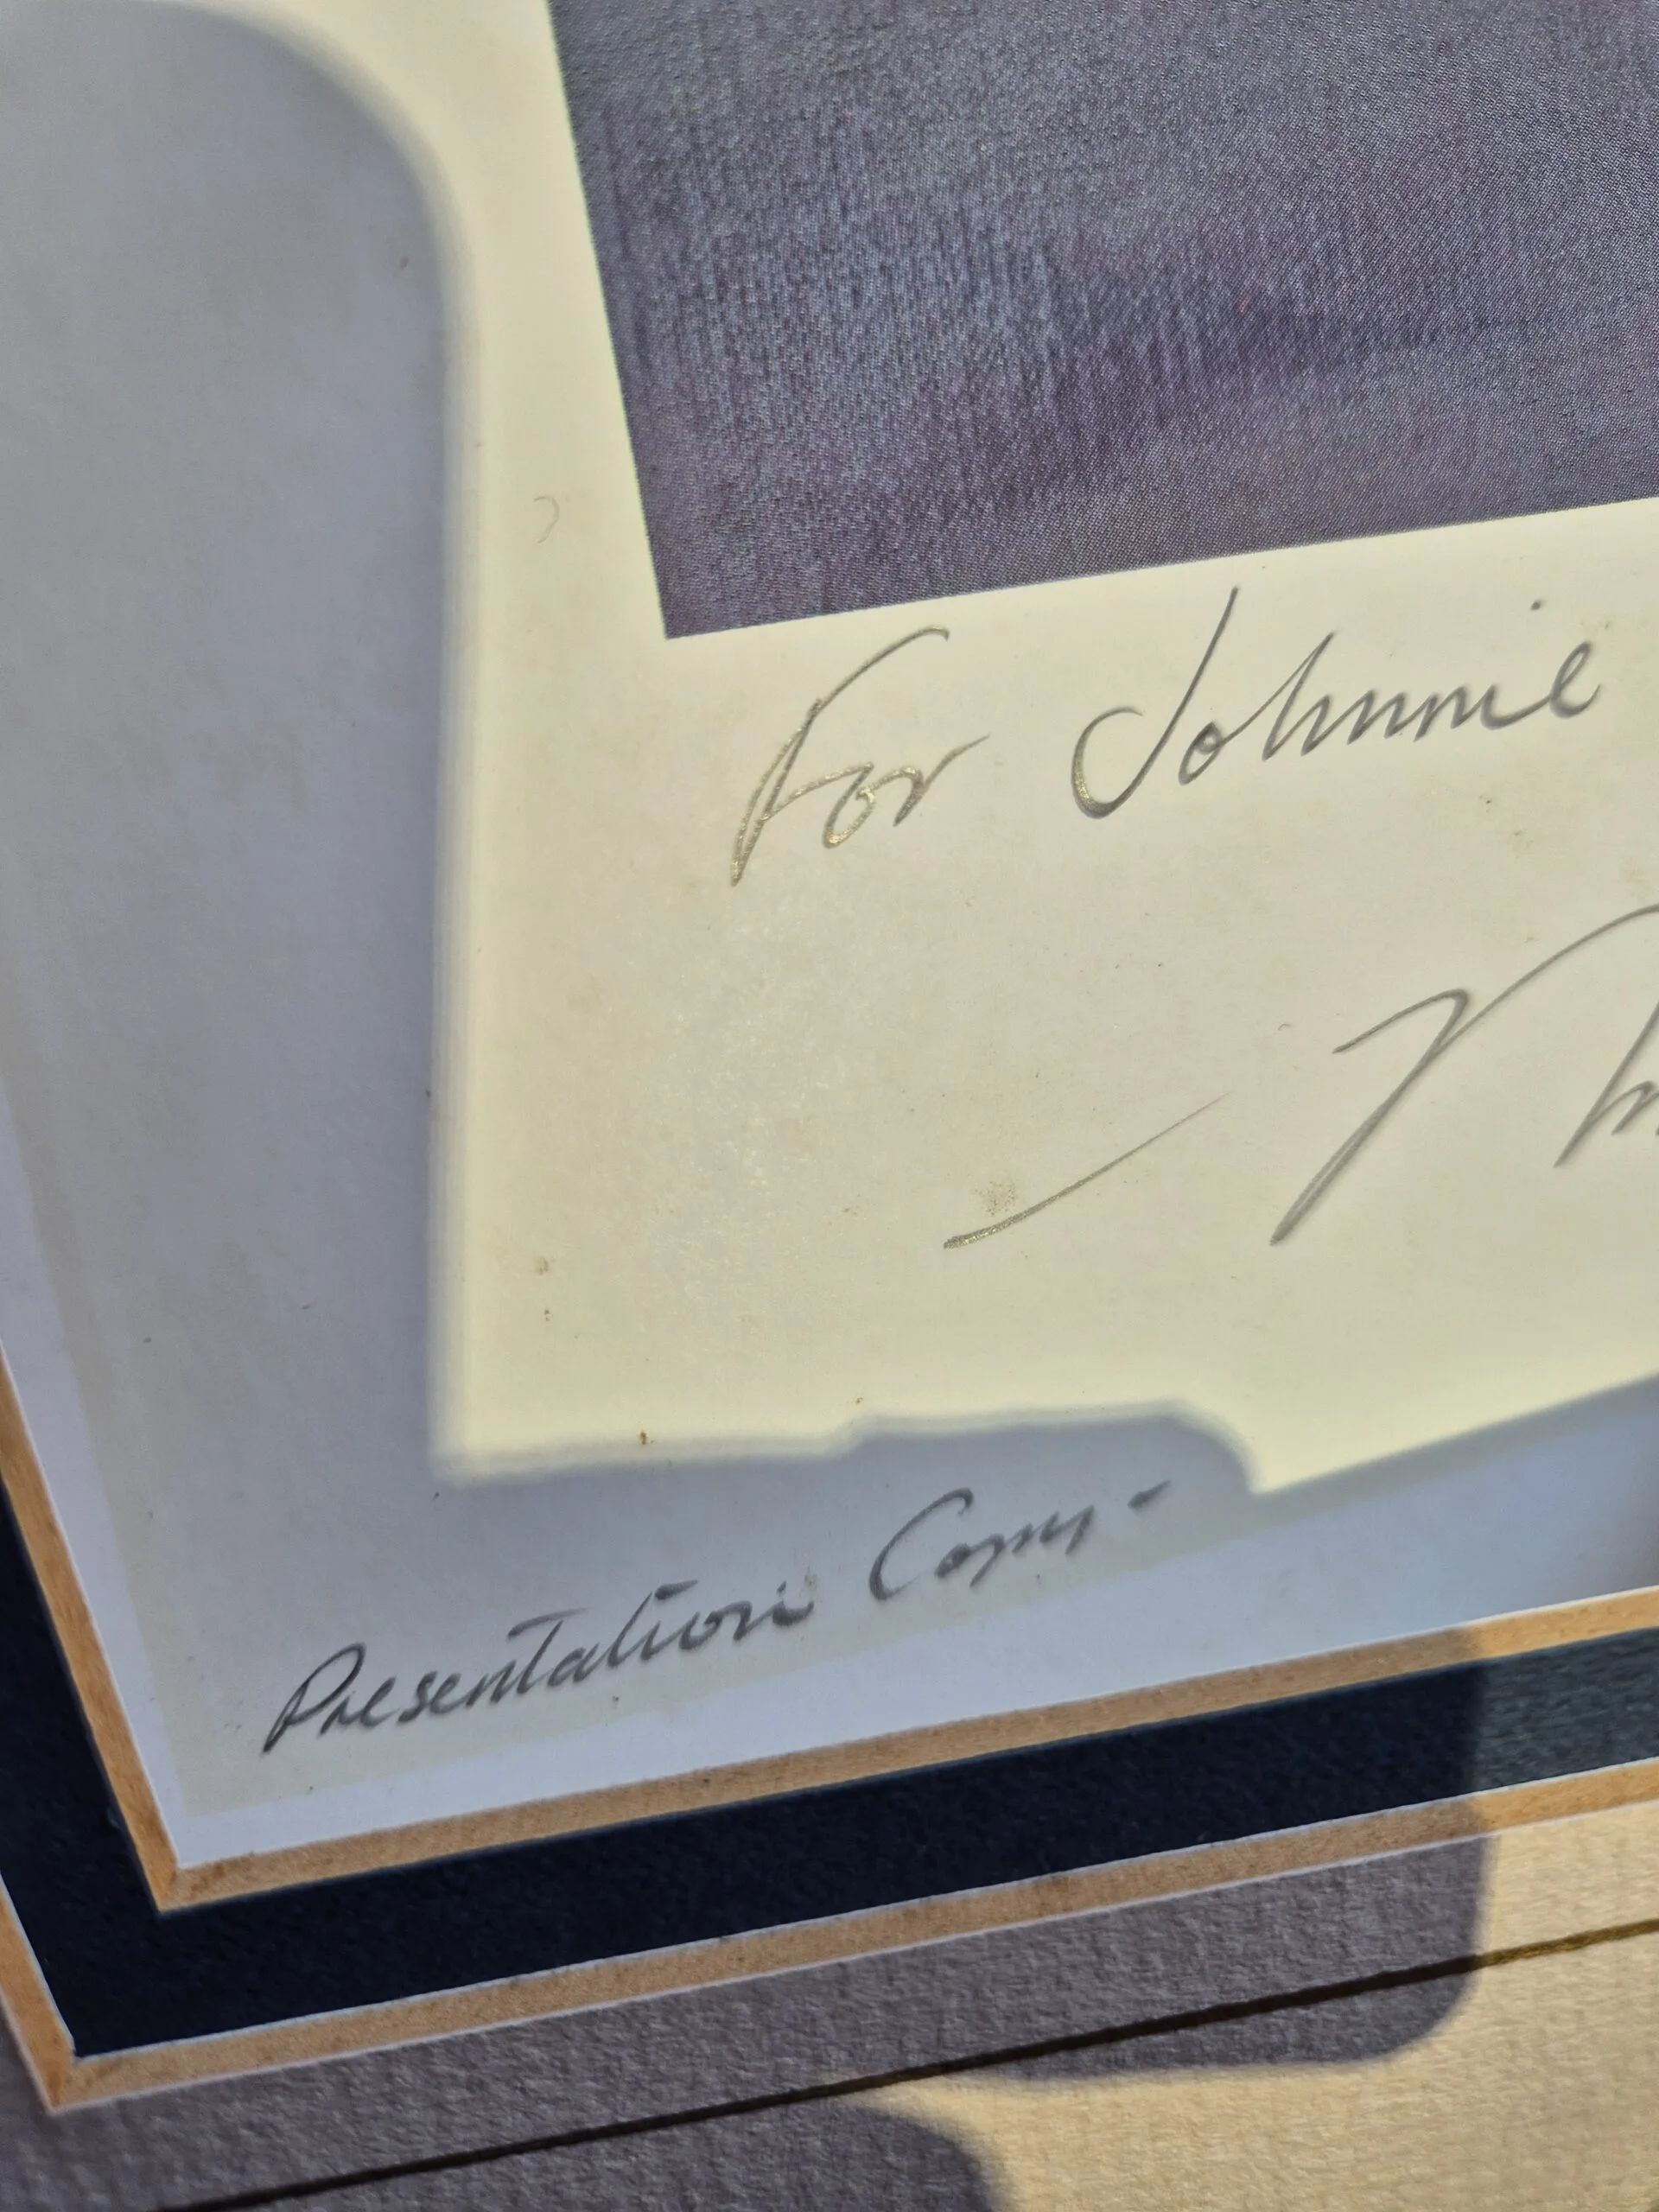 For Johnnie
Presentation Copy -